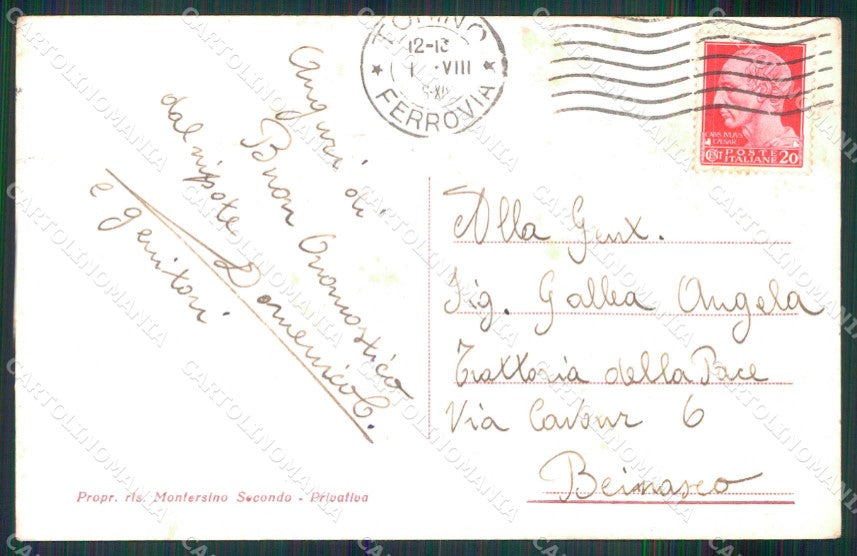 Auguri di
Buon Onomastico
dal nipote Domenico C.
e genitori
TORINO
12-13
VIII
FERROVIA
CAIVS IVLIVS
CAESAR
CENT POSTE 20
ITALIANE
Alla Gent.
Sig. Gallea Angela
Trattoria della Pace
Via Cavour 6
Beinasco
Propr. ris. Montersino Secondo - Privativa
CARTOLINOMANIA